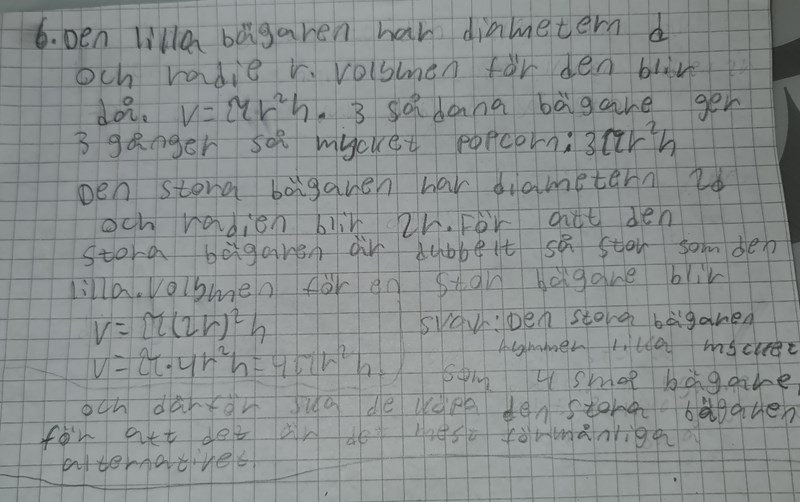 6. Den lilla bägaren har diametern d
och radie r. Volymen för den blir
då. V=πr²h. 3 sådana bägare ger
3 gånger så mycket popcorn: 3πr²h
Den stora bägaren har diametern 2d
och radien blir 2r. För att den
stora bägaren är dubbelt så stor som den
lilla. Volymen för en stor bägare blir
V=π(2r)²h
V=π·4r²h=4πr²h.
Svar: Den stora bägaren
rymmer lika mycket
som 4 små bägare,
och därför ska de köpa den stora bägaren
för att det är det mest förmånliga
alternativet.